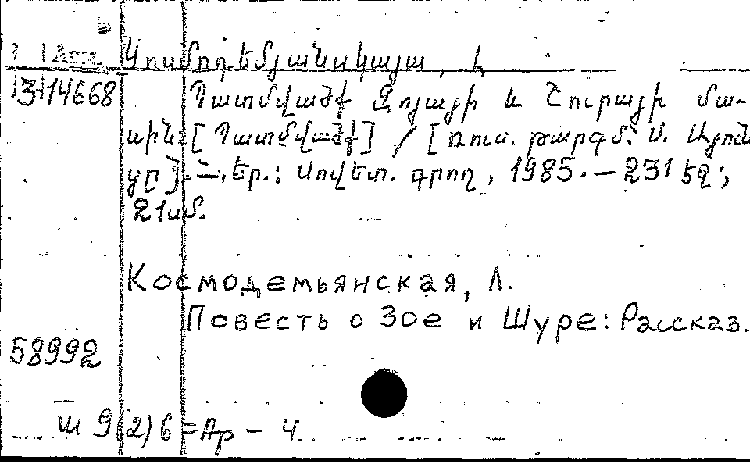 Կոսմոդեմյանսկայա, Լ
13114668 Պատմվածք Զոյայի և Շուրայի մա-
սին: [Պատմվածք] / [Ռուս. թարգմ. Ս.
Եր.: Սովետ. գրող, 1985. — 231 էջ;
21սմ.
Космодемьянская, Л.
Повесть о Зое и Шуре: Рассказ.
58992
Ш 9(2)6=Ар – 4